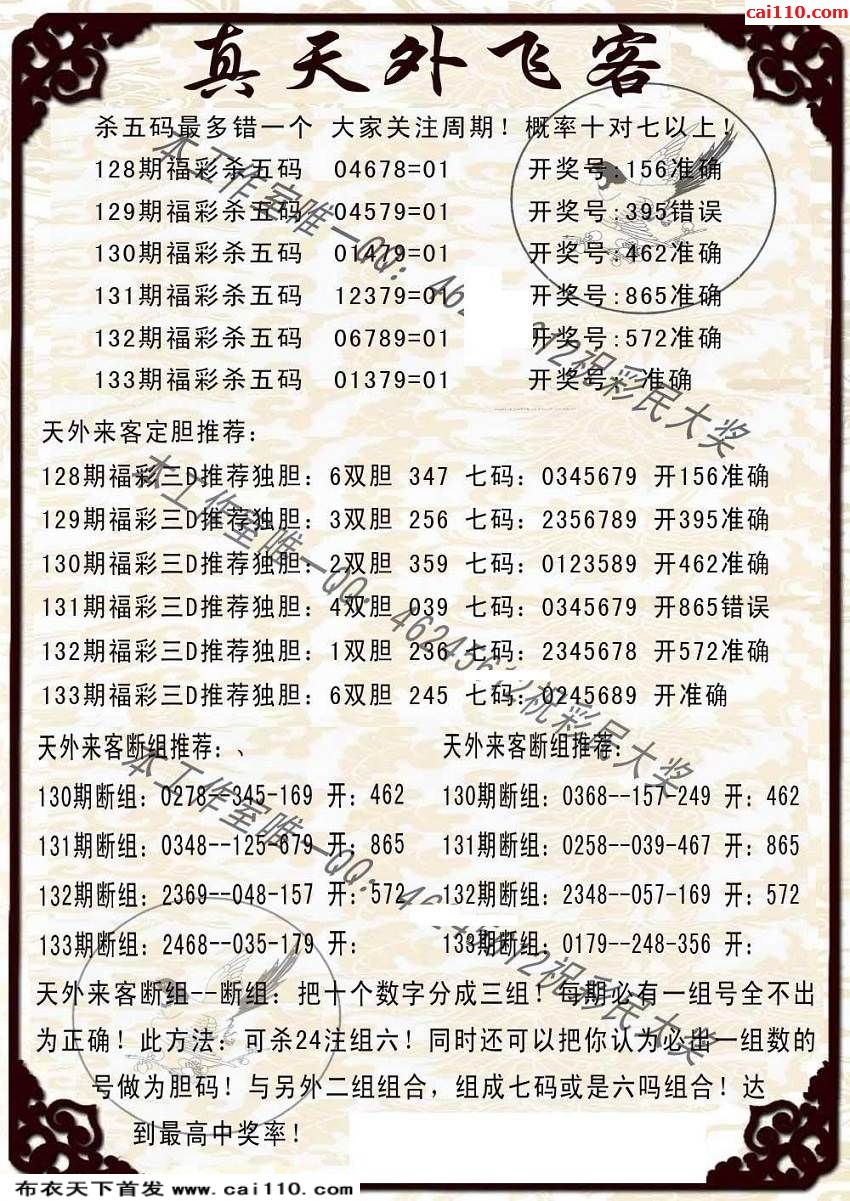 cai110.com
真天外飞客
杀五码最多错一个 大家关注周期！概率十对七以上！
128期福彩杀五码 04678=01 开奖号:156准确
129期福彩杀五码 04579=01 开奖号:395错误
130期福彩杀五码 01479=01 开奖号:462准确
131期福彩杀五码 12379=01 开奖号:865准确
132期福彩杀五码 06789=01 开奖号:572准确
133期福彩杀五码 01379=01 开奖号: 准确
天外来客定胆推荐：
128期福彩三D推荐独胆：6双胆 347 七码：0345679 开156准确
129期福彩三D推荐独胆：3双胆 256 七码：2356789 开395准确
130期福彩三D推荐独胆：2双胆 359 七码：0123589 开462准确
131期福彩三D推荐独胆：4双胆 039 七码：0345679 开865错误
132期福彩三D推荐独胆：1双胆 236 七码：2345678 开572准确
133期福彩三D推荐独胆：6双胆 245 七码：0245689 开准确
天外来客断组推荐：、 天外来客断组推荐：
130期断组：0278--345-169 开：462 130期断组：0368--157-249 开：462
131期断组：0348--125-679 开：865 131期断组：0258--039-467 开：865
132期断组：2369--048-157 开：572 132期断组：2348--057-169 开：572
133期断组：2468--035-179 开： 133期断组：0179--248-356 开：
天外来客断组--断组：把十个数字分成三组！每期必有一组号全不出
为正确！此方法：可杀24注组六！同时还可以把你认为必出一组数的
号做为胆码！与另外二组组合，组成七码或是六吗组合！达
到最高中奖率！
本工作室唯一QQ：462 612祝彩民大奖
本工作室唯一QQ：46245612祝彩民大奖
本工作室唯一QQ：46245612祝彩民大奖
布衣天下首发 www.cai110.com